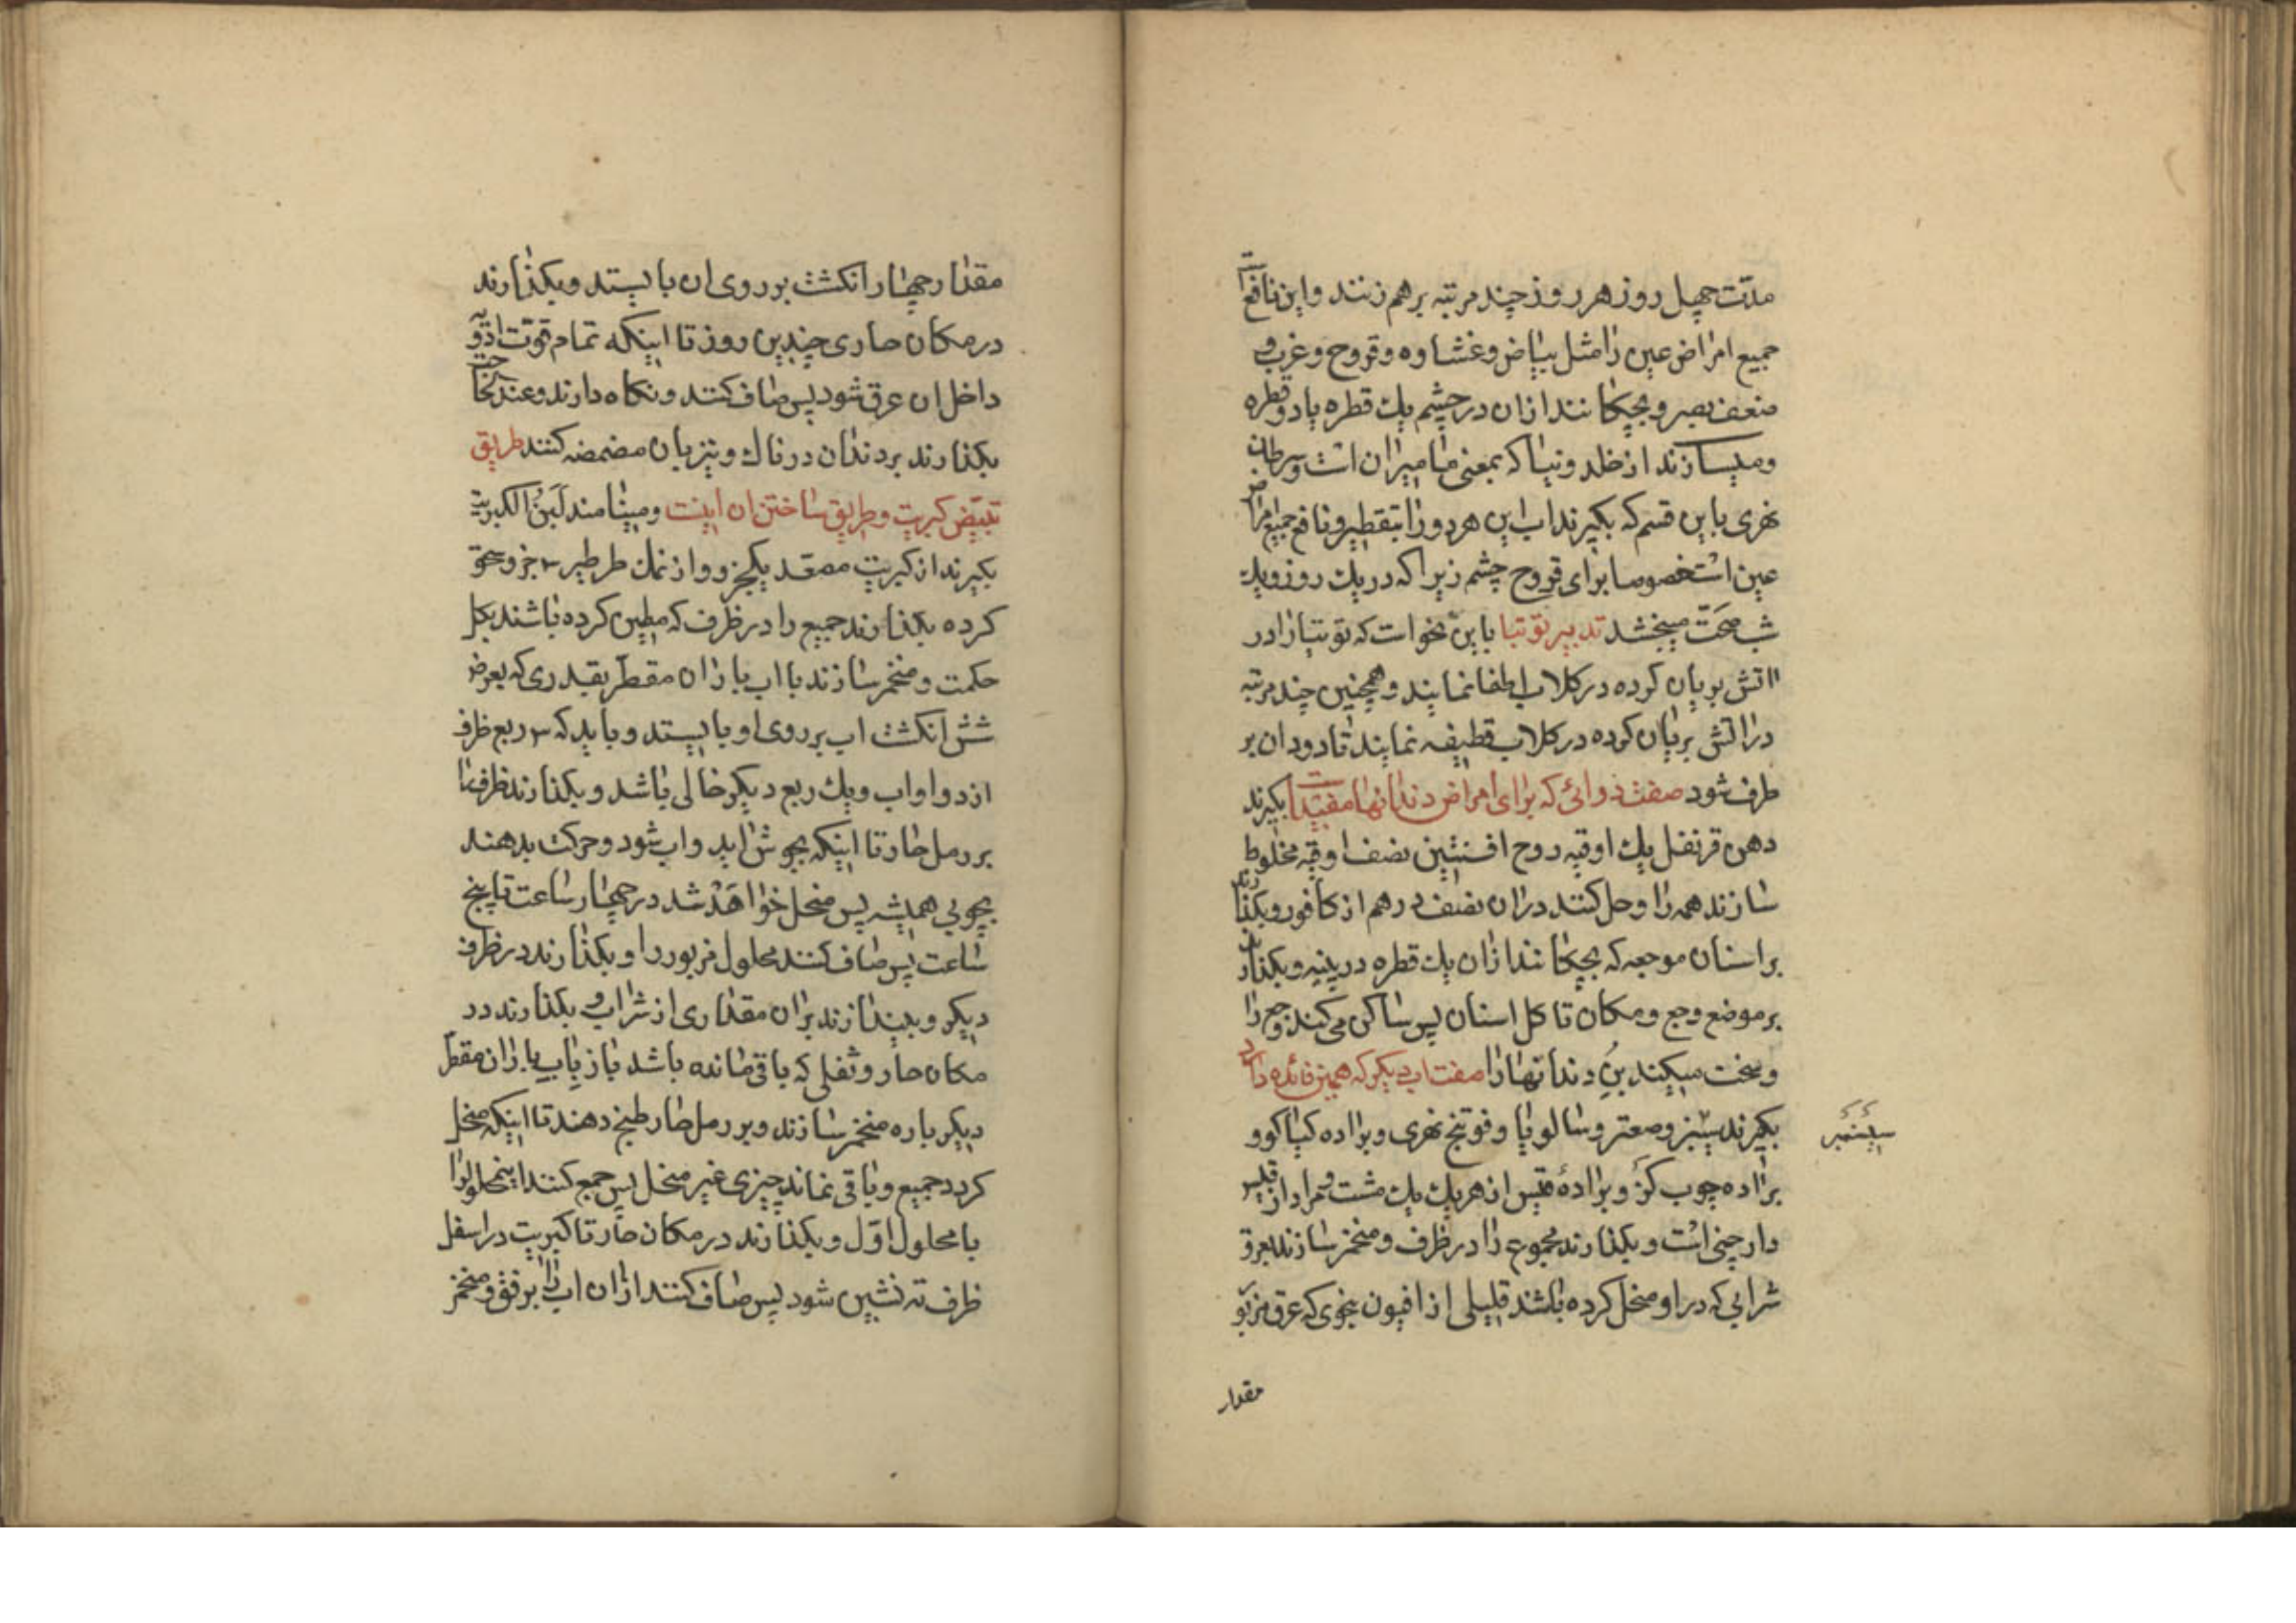 مدّت چهل روز هر روز چند مرتبه برهم زنند و این نافع است
جمیع امراض عین را مثل بیاض و غشاوه و قروح و غرب و
ضعف بصر و بچکانند ازان در چشم یك قطره یا دو قطره
و میسازند از خلد ونیا که بمعنی مامیران است و سرطان
نهری باین قسم که بکیرند اب این هر دو را بتقطیر و نافع جمیع امراض
عین است خصوصا برای قروح چشم زیرا که در یك روز و یك
شب صحّت میبخشد تدبیر توتیا باین نحو است که توتیا را در
اتش بریان کرده در کلاب اطفا نمایند و همچنین چند مرتبه
در اتش بریان کرده در کلاب قطیفه نمایند تا دود ان بر
طرف شود صفت دوائی که برای امراض دندانها مفید است بکیرند
دهن قرنفل یك اوقیه روح افسنتین نصف اوقیه مخلوط
سازند همه را و حل کنند دران نصف درهم از کافور و بکذارند
بر اسنان موجعه که بچکانند ازان یك قطره در پنبه و بکذارند
بر موضع وجع و مکان تاکل اسنان پس ساکن می کند وجع را
و سخت میکند بن دندانها را صفت اب دیکر که همین فائده دارد
بکیرند سیسنبر و صعتر و سالویا و فوتنج نهری و براده کیاکو و
براده چوب کز و براده قیس از هر یك یك مشت و مراد از قیس
دارچینی است و بکذارند مجموع را در ظرف و منخمر سازند بعرق
شرابی که در او منحل کرده باشند قلیلی از افیون بنحوی که عرق مزبور
سیسنمبر
مقدار
مقدار چهار انکشت بر روی ان بایستد و بکذارند
در مکان حاری چندین روز تا اینکه تمام قوّت ادویه
داخل ان عرق شود پس صاف کنند و نکاه دارند و عند الحاجت
بکذارند بر دندان دردناك و نیز بان مضمضه کنند طریق
تبییض کبریت و طریق ساختن ان اینست و مینامند لَبَنُ الکبریت
بکیرند از کبریت مصعّد یکجزو و از نمك طرطیر ۳ جزو سحق
کرده بکذارند جمیع را در ظرف که مطین کرده باشند بکل
حکمت و منخمر سازند با اب باران مقطّر بقدری که بعرض
شش انکشت اب بر روی او بایستد و باید که ۳ ربع ظرف
از دوا و اب و یك ربع دیکر خالی باشد و بکذارند ظرف را
بر رمل حار تا اینکه بجوش اید و اب شود و حرکت بدهند
بچوبی همیشه پس منحل خواهد شد در چهار ساعت تا پنج
ساعت پس صاف کنند محلول مزبور را و بکذارند در ظرف
دیکر و بیندازند بران مقداری از شراب و بکذارند در
مکان حار و ثفلی که باقی مانده باشد باز باب باران مقطّر
دیکر باره منخمر سازند و بر رمل حار طبخ دهند تا اینکه منحل
کردد جمیع و باقی نماند چیزی غیر منحل پس جمع کنند اینمحلول را
با محلول اوّل و بکذارند در مکان حار تا کبریت در اسفل
ظرف ته نشین شود پس صاف کنند ازان اب را برفق و منخمر